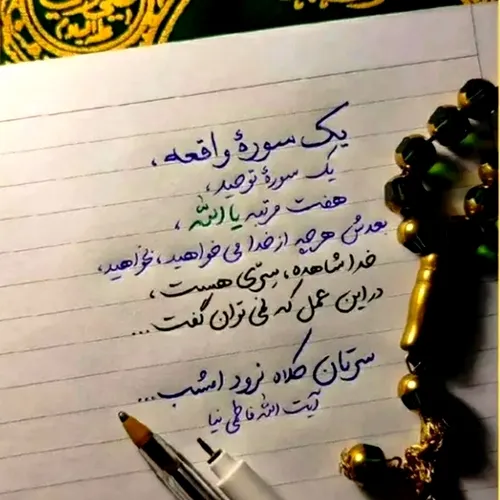 یک سورهٔ واقعه،
یک سورهٔ توحید،
هفت مرتبه یا الله،
بعدش هرچه از خدا می خواهید، بخواهید،
خدا شاهده، سِرّی هست،
در این عمل که نمی توان گفت...
سرتان کلاه نرود امشب...
آیت الله فاطمی نیا